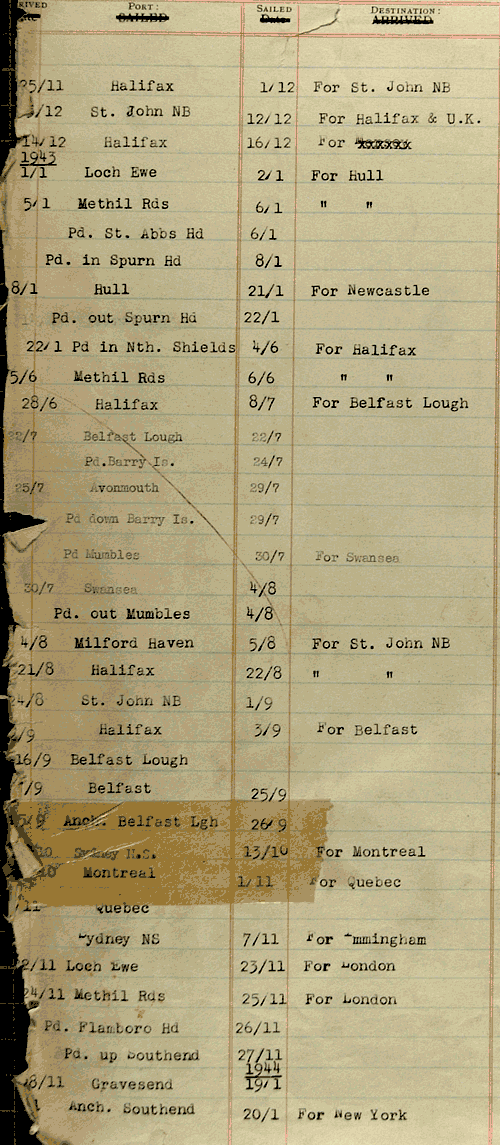 RIVED PORT: SAILED DESTINATION:
Date SAILED Date ARRIVED
25/11 Halifax 1/12 For St. John NB
/12 St. John NB 12/12 For Halifax & U.K.
14/12 Halifax 16/12 For
1943
1/1 Loch Ewe 2/1 For Hull
5/1 Methil Rds 6/1 " "
Pd. St. Abbs Hd 6/1
Pd. in Spurn Hd 8/1
8/1 Hull 21/1 For Newcastle
Pd. out Spurn Hd 22/1
22/1 Pd in Nth. Shields 4/6 For Halifax
5/6 Methil Rds 6/6 " "
28/6 Halifax 8/7 For Belfast Lough
22/7 Belfast Lough 22/7
Pd.Barry Is. 24/7
25/7 Avonmouth 29/7
Pd down Barry Is. 29/7
Pd Mumbles 30/7 For Swansea
30/7 Swansea 4/8
Pd. out Mumbles 4/8
4/8 Milford Haven 5/8 For St. John NB
21/8 Halifax 22/8 " "
24/8 St. John NB 1/9
2/9 Halifax 3/9 For Belfast
16/9 Belfast Lough
/9 Belfast 25/9
5/9 Anch. Belfast Lgh 26/9
10 Sydney N.S. 13/10 For Montreal
10 Montreal 1/11 For Quebec
/11 Quebec
ydney NS 7/11 For Immingham
2/11 Loch Ewe 23/11 For London
24/11 Methil Rds 25/11 For London
Pd. Flamboro Hd 26/11
Pd. up Southend 27/11
1944
8/11 Gravesend 19/1
Anch. Southend 20/1 For New York